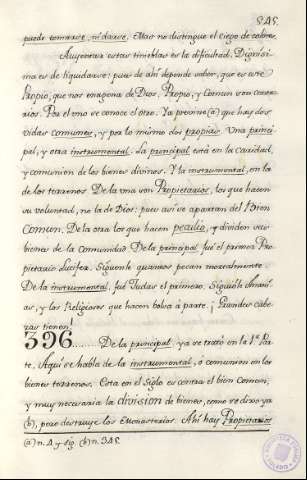 245.
puede tomarse, ni darse. Mas no distingue el ciego de colores.
Auyentar estas tinieblas es la dificultad. Dignisi-
ma es de liquidarse: pues de ahi depende saber, que es este
Propio, que nos enagena de Dios. Propio, y Comun son contra-
rios. Por el uno se conoce el otro. Ya previne (a) que hay dos
vidas comunes, y por lo mismo dos propias. Una princi-
pal, y otra instrumental. La principal está en la caridad,
y comunion de los bienes divinos. Y la instrumental, en la
de los terrenos. De la una son Propietarios, los que hacen
su voluntad, no la de Dios: pues asi se apartan del Bien
Comun. De la otra los que hacen peculio, y dividen sus
bienes de la Comunidad. De la principal fué el primer Pro-
pietario Lucifer. Siguenle quantos pecan mortalmente.
De la instrumental, fué Judas el primero. Siguióle Ananí-
as, y los Religiosos que hacen bolsa á parte. ¡Grandes cabe-
zas tienen!
396 De la principal ya se trató en la 1.ª Par-
te. Aqui se habla de la instrumental, ó comunion en los
bienes terrenos. Esta en el Siglo es contra el bien Comun;
y muy necesaria la division de bienes, como se dixo ya
(b), pero destruye los Monasterios. Ahi hay Propietarios
(a) n. 4 y sig. (b) n. 345.